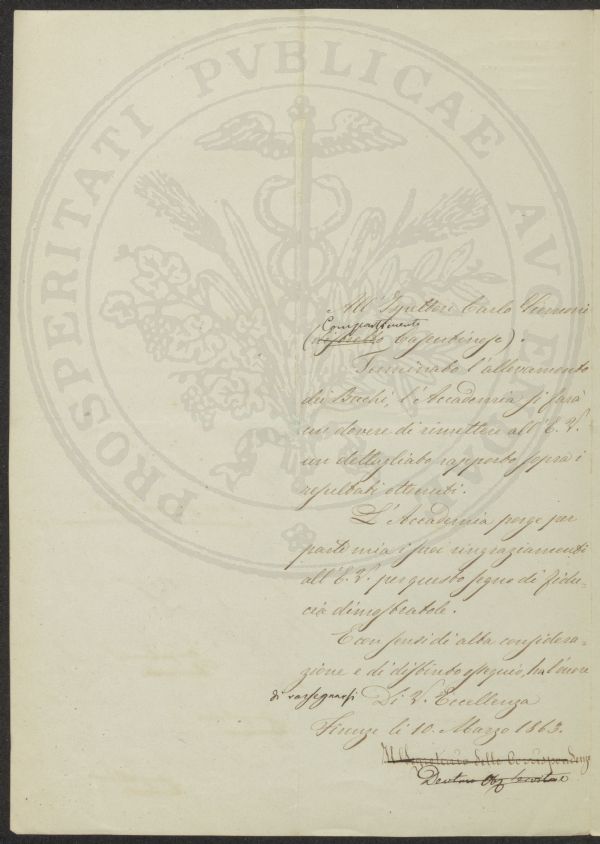 PROSPERITATI PVBLICAE AVGENDAE
All' Ispettore Carlo Siemoni
Compartimento
(distretto Casentinese).
Terminato l'allevamento
dei Bachi, l'Accademia si farà
un dovere di rimettere all' E. V.
un dettagliato rapporto sopra i
resultati ottenuti.
L'Accademia porge per
parte mia i suoi ringraziamenti
all' E. V. per questo segno di fidu=
cia dimostratole.
E con sensi di alta considera=
zione e di distinto ossequio, ha l'onore
di rassegnarsi Di V. Eccellenza
Firenze li 10. Marzo 1863.
Il Segretario delle Corrispondenze
Devotmo Obb Servitore